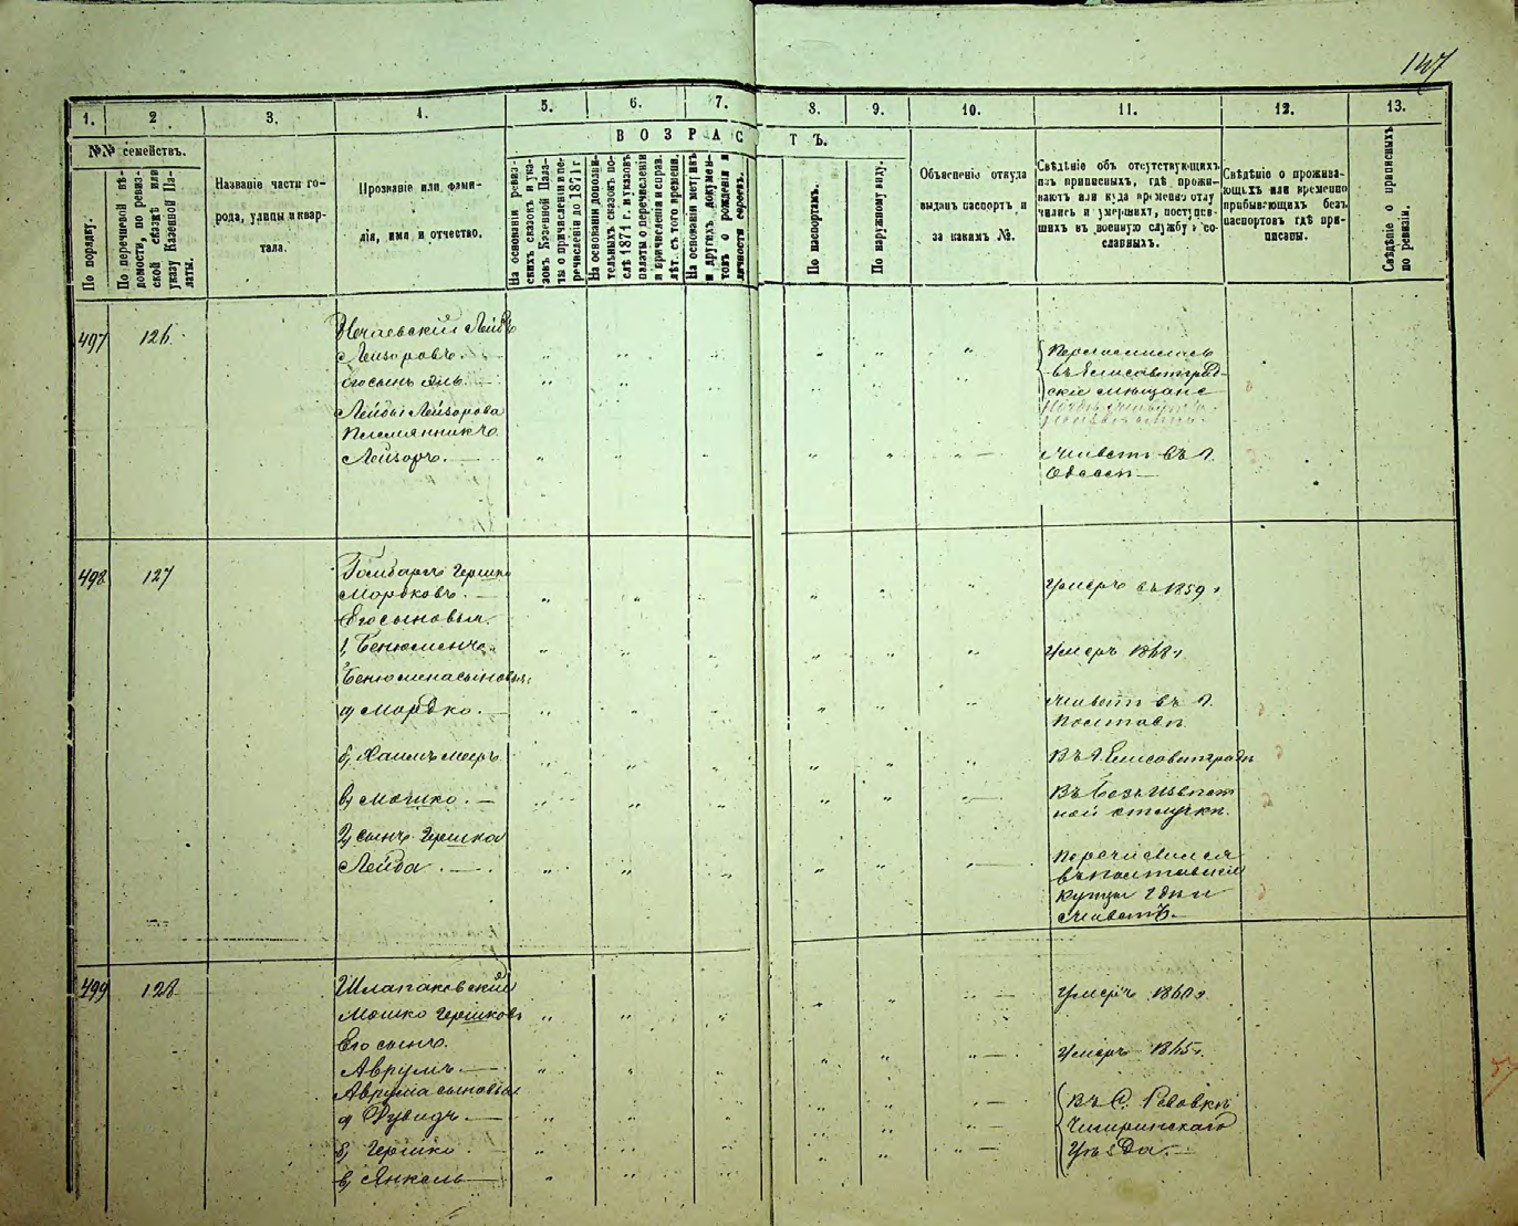 147
1. 2 3. 4. 5. 6. 7. 8. 9. 10. 11. 12. 13.
№№ семействъ.
В О З Р А С Т Ъ.
По порядку.
По перечневой вѣ-
домости, по ревиз-
ской сказкѣ или
указу Казенной Па-
латы.
Названіе части го-
рода, улицы и квар-
тала.
Прозваніе или фами-
лія, имя и отчество.
На основаніи ревиз-
скихъ сказокъ и ука-
зовъ Казенной Пала-
ты о причисленіи и пе-
речисленіи до 1871 г.
На основаніи дополни-
тельныхъ сказокъ по-
слѣ 1871 г. и указовъ
палаты о перечисленіи
и причисленіи и справ.
лѣт. съ того времени.
На основаніи метрикъ
и другихъ докумен-
товъ о рожденіи и
личности евреевъ.
По паспортамъ.
По наружному виду.
Объясненіе откуда
выданъ паспортъ и
за какимъ №.
Свѣдѣніе объ отсутствующихъ
изъ приписныхъ, гдѣ прожи-
ваютъ или куда временно отлу
чились и умершихъ, поступив-
шихъ въ военную службу и со-
сланныхъ.
Свѣдѣніе о прожива-
ющихъ или временно
прибывающихъ безъ
паспортовъ гдѣ при-
писаны.
Свѣдѣніе о приписныхъ
по ревизіи.
497 126 Нечаевскій Лейбъ
Лейзоровъ. Перечислилась
Его сынъ Эль. въ Елисаветград-
скіе мѣщане
Лейбы Лейзорова
Племянникъ
Лейзоръ. Живетъ въ г.
Одессѣ
498 127 Гомбаргъ Гершко
Мордковъ. Умеръ въ 1859 г
Его сыновья.
1, Бенюменъ. Умеръ 1868 г.
Бенюмена сыновья:
а, Мордко. Живетъ въ г.
Полтавѣ
б, Хаимъ Мееръ Въ г. Елисаветградѣ
в, Мошко. Въ безъизвѣст
ной отлучкѣ.
2, сынъ Гершка
Лейба Перечислился
въ полтавскіе
купцы гдѣ и
живетъ.
499 128 Шлапаковскій Умеръ 1860 г.
Мошко Гершковъ
Его сынъ.
Аврумъ. Умеръ 1865 г.
Аврума сыновья
а, Дувидъ. Въ с.
б, Гершко. Чигиринскаго
в, Янкель Уѣзда.